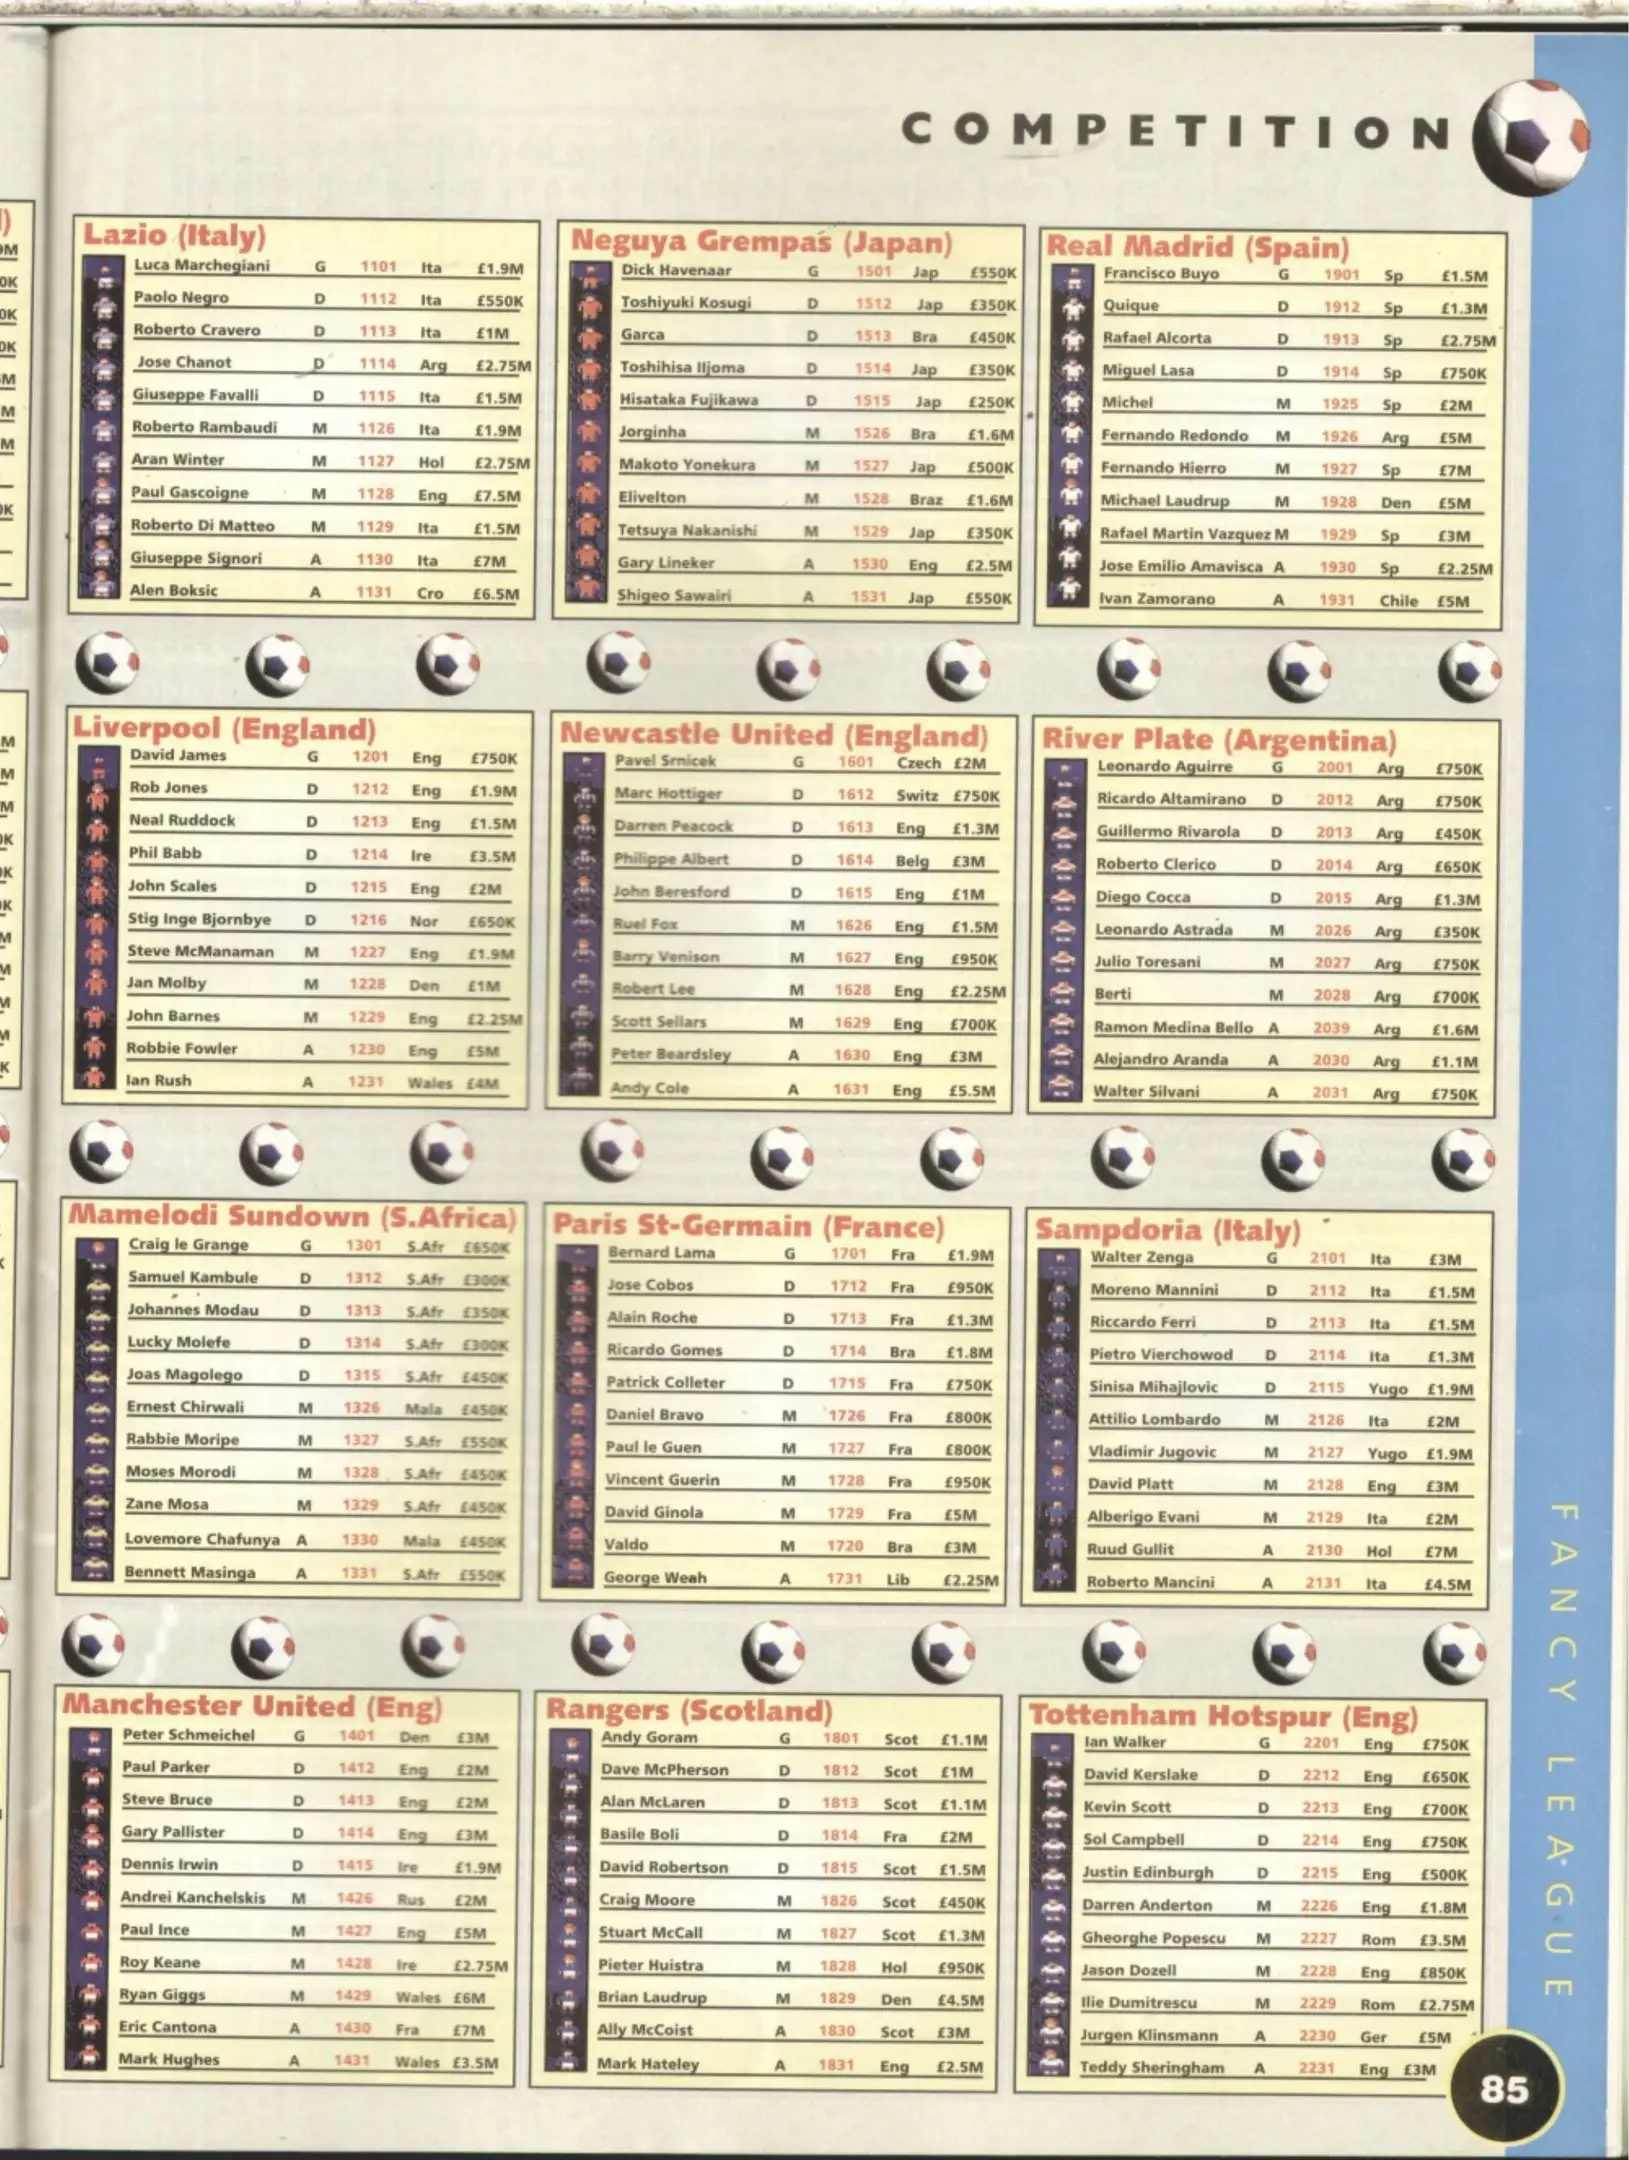 COMPETITION
Lazio (Italy)
Luca Marchegiani G 1101 Ita £1.9M
Paolo Negro D 1112 Ita £550K
Roberto Cravero D 1113 Ita £1M
Jose Chanot D 1114 Arg £2.75M
Giuseppe Favalli D 1115 Ita £1.5M
Roberto Rambaudi M 1126 Ita £1.9M
Aran Winter M 1127 Hol £2.75M
Paul Gascoigne M 1128 Eng £7.5M
Roberto Di Matteo M 1129 Ita £1.5M
Giuseppe Signori A 1130 Ita £7M
Alen Boksic A 1131 Cro £6.5M
Neguya Grempas (Japan)
Dick Havenaar G 1501 Jap £550K
Toshiyuki Kosugi D 1512 Jap £350K
Garca D 1513 Bra £450K
Toshihisa Iljoma D 1514 Jap £350K
Hisataka Fujikawa D 1515 Jap £250K
Jorginha M 1526 Bra £1.6M
Makoto Yonekura M 1527 Jap £500K
Elivelton M 1528 Braz £1.6M
Tetsuya Nakanishi M 1529 Jap £350K
Gary Lineker A 1530 Eng £2.5M
Shigeo Sawairi A 1531 Jap £550K
Real Madrid (Spain)
Francisco Buyo G 1901 Sp £1.5M
Quique D 1912 Sp £1.3M
Rafael Alcorta D 1913 Sp £2.75M
Miguel Lasa D 1914 Sp £750K
Michel M 1925 Sp £2M
Fernando Redondo M 1926 Arg £5M
Fernando Hierro M 1927 Sp £7M
Michael Laudrup M 1928 Den £5M
Rafael Martin Vazquez M 1929 Sp £3M
Jose Emilio Amavisca A 1930 Sp £2.25M
Ivan Zamorano A 1931 Chile £5M
Liverpool (England)
David James G 1201 Eng £750K
Rob Jones D 1212 Eng £1.9M
Neal Ruddock D 1213 Eng £1.5M
Phil Babb D 1214 Ire £3.5M
John Scales D 1215 Eng £2M
Stig Inge Bjornbye D 1216 Nor £650K
Steve McManaman M 1227 Eng £1.9M
Jan Molby M 1228 Den £1M
John Barnes M 1229 Eng £2.25M
Robbie Fowler A 1230 Eng £5M
Ian Rush A 1231 Wales £4M
Newcastle United (England)
Pavel Srnicek G 1601 Czech £2M
Marc Hottiger D 1612 Switz £750K
Darren Peacock D 1613 Eng £1.3M
Philippe Albert D 1614 Belg £3M
John Beresford D 1615 Eng £1M
Ruel Fox M 1626 Eng £1.5M
Barry Venison M 1627 Eng £950K
Robert Lee M 1628 Eng £2.25M
Scott Sellars M 1629 Eng £700K
Peter Beardsley A 1630 Eng £3M
Andy Cole A 1631 Eng £5.5M
River Plate (Argentina)
Leonardo Aguirre G 2001 Arg £750K
Ricardo Altamirano D 2012 Arg £750K
Guillermo Rivarola D 2013 Arg £450K
Roberto Clerico D 2014 Arg £650K
Diego Cocca D 2015 Arg £1.3M
Leonardo Astrada M 2026 Arg £350K
Julio Toresani M 2027 Arg £750K
Berti M 2028 Arg £700K
Ramon Medina Bello A 2039 Arg £1.6M
Alejandro Aranda A 2030 Arg £1.1M
Walter Silvani A 2031 Arg £750K
Mamelodi Sundown (S.Africa)
Craig le Grange G 1301 S.Afr £650K
Samuel Kambule D 1312 S.Afr £300K
Johannes Modau D 1313 S.Afr £350K
Lucky Molefe D 1314 S.Afr £300K
Joas Magolego D 1315 S.Afr £450K
Ernest Chirwali M 1326 Mala £450K
Rabbie Moripe M 1327 S.Afr £550K
Moses Morodi M 1328 S.Afr £450K
Zane Mosa M 1329 S.Afr £450K
Lovemore Chafunya A 1330 Mala £450K
Bennett Masinga A 1331 S.Afr £550K
Paris St-Germain (France)
Bernard Lama G 1701 Fra £1.9M
Jose Cobos D 1712 Fra £950K
Alain Roche D 1713 Fra £1.3M
Ricardo Gomes D 1714 Bra £1.8M
Patrick Colleter D 1715 Fra £750K
Daniel Bravo M 1726 Fra £800K
Paul le Guen M 1727 Fra £800K
Vincent Guerin M 1728 Fra £950K
David Ginola M 1729 Fra £5M
Valdo M 1720 Bra £3M
George Weah A 1731 Lib £2.25M
Sampdoria (Italy)
Walter Zenga G 2101 Ita £3M
Moreno Mannini D 2112 Ita £1.5M
Riccardo Ferri D 2113 Ita £1.5M
Pietro Vierchowod D 2114 Ita £1.3M
Sinisa Mihajlovic D 2115 Yugo £1.9M
Attilio Lombardo M 2126 Ita £2M
Vladimir Jugovic M 2127 Yugo £1.9M
David Platt M 2128 Eng £3M
Alberigo Evani M 2129 Ita £2M
Ruud Gullit A 2130 Hol £7M
Roberto Mancini A 2131 Ita £4.5M
Manchester United (Eng)
Peter Schmeichel G 1401 Den £3M
Paul Parker D 1412 Eng £2M
Steve Bruce D 1413 Eng £2M
Gary Pallister D 1414 Eng £3M
Dennis Irwin D 1415 Ire £1.9M
Andrei Kanchelskis M 1426 Rus £2M
Paul Ince M 1427 Eng £5M
Roy Keane M 1428 Ire £2.75M
Ryan Giggs M 1429 Wales £6M
Eric Cantona A 1430 Fra £7M
Mark Hughes A 1431 Wales £3.5M
Rangers (Scotland)
Andy Goram G 1801 Scot £1.1M
Dave McPherson D 1812 Scot £1M
Alan McLaren D 1813 Scot £1.1M
Basile Boli D 1814 Fra £2M
David Robertson D 1815 Scot £1.5M
Craig Moore M 1826 Scot £450K
Stuart McCall M 1827 Scot £1.3M
Pieter Huistra M 1828 Hol £950K
Brian Laudrup M 1829 Den £4.5M
Ally McCoist A 1830 Scot £3M
Mark Hateley A 1831 Eng £2.5M
Tottenham Hotspur (Eng)
Ian Walker G 2201 Eng £750K
David Kerslake D 2212 Eng £650K
Kevin Scott D 2213 Eng £700K
Sol Campbell D 2214 Eng £750K
Justin Edinburgh D 2215 Eng £500K
Darren Anderton M 2226 Eng £1.8M
Gheorghe Popescu M 2227 Rom £3.5M
Jason Dozell M 2228 Eng £850K
Ilie Dumitrescu M 2229 Rom £2.75M
Jurgen Klinsmann A 2230 Ger £5M
Teddy Sheringham A 2231 Eng £3M
FANCY LEAGUE
85